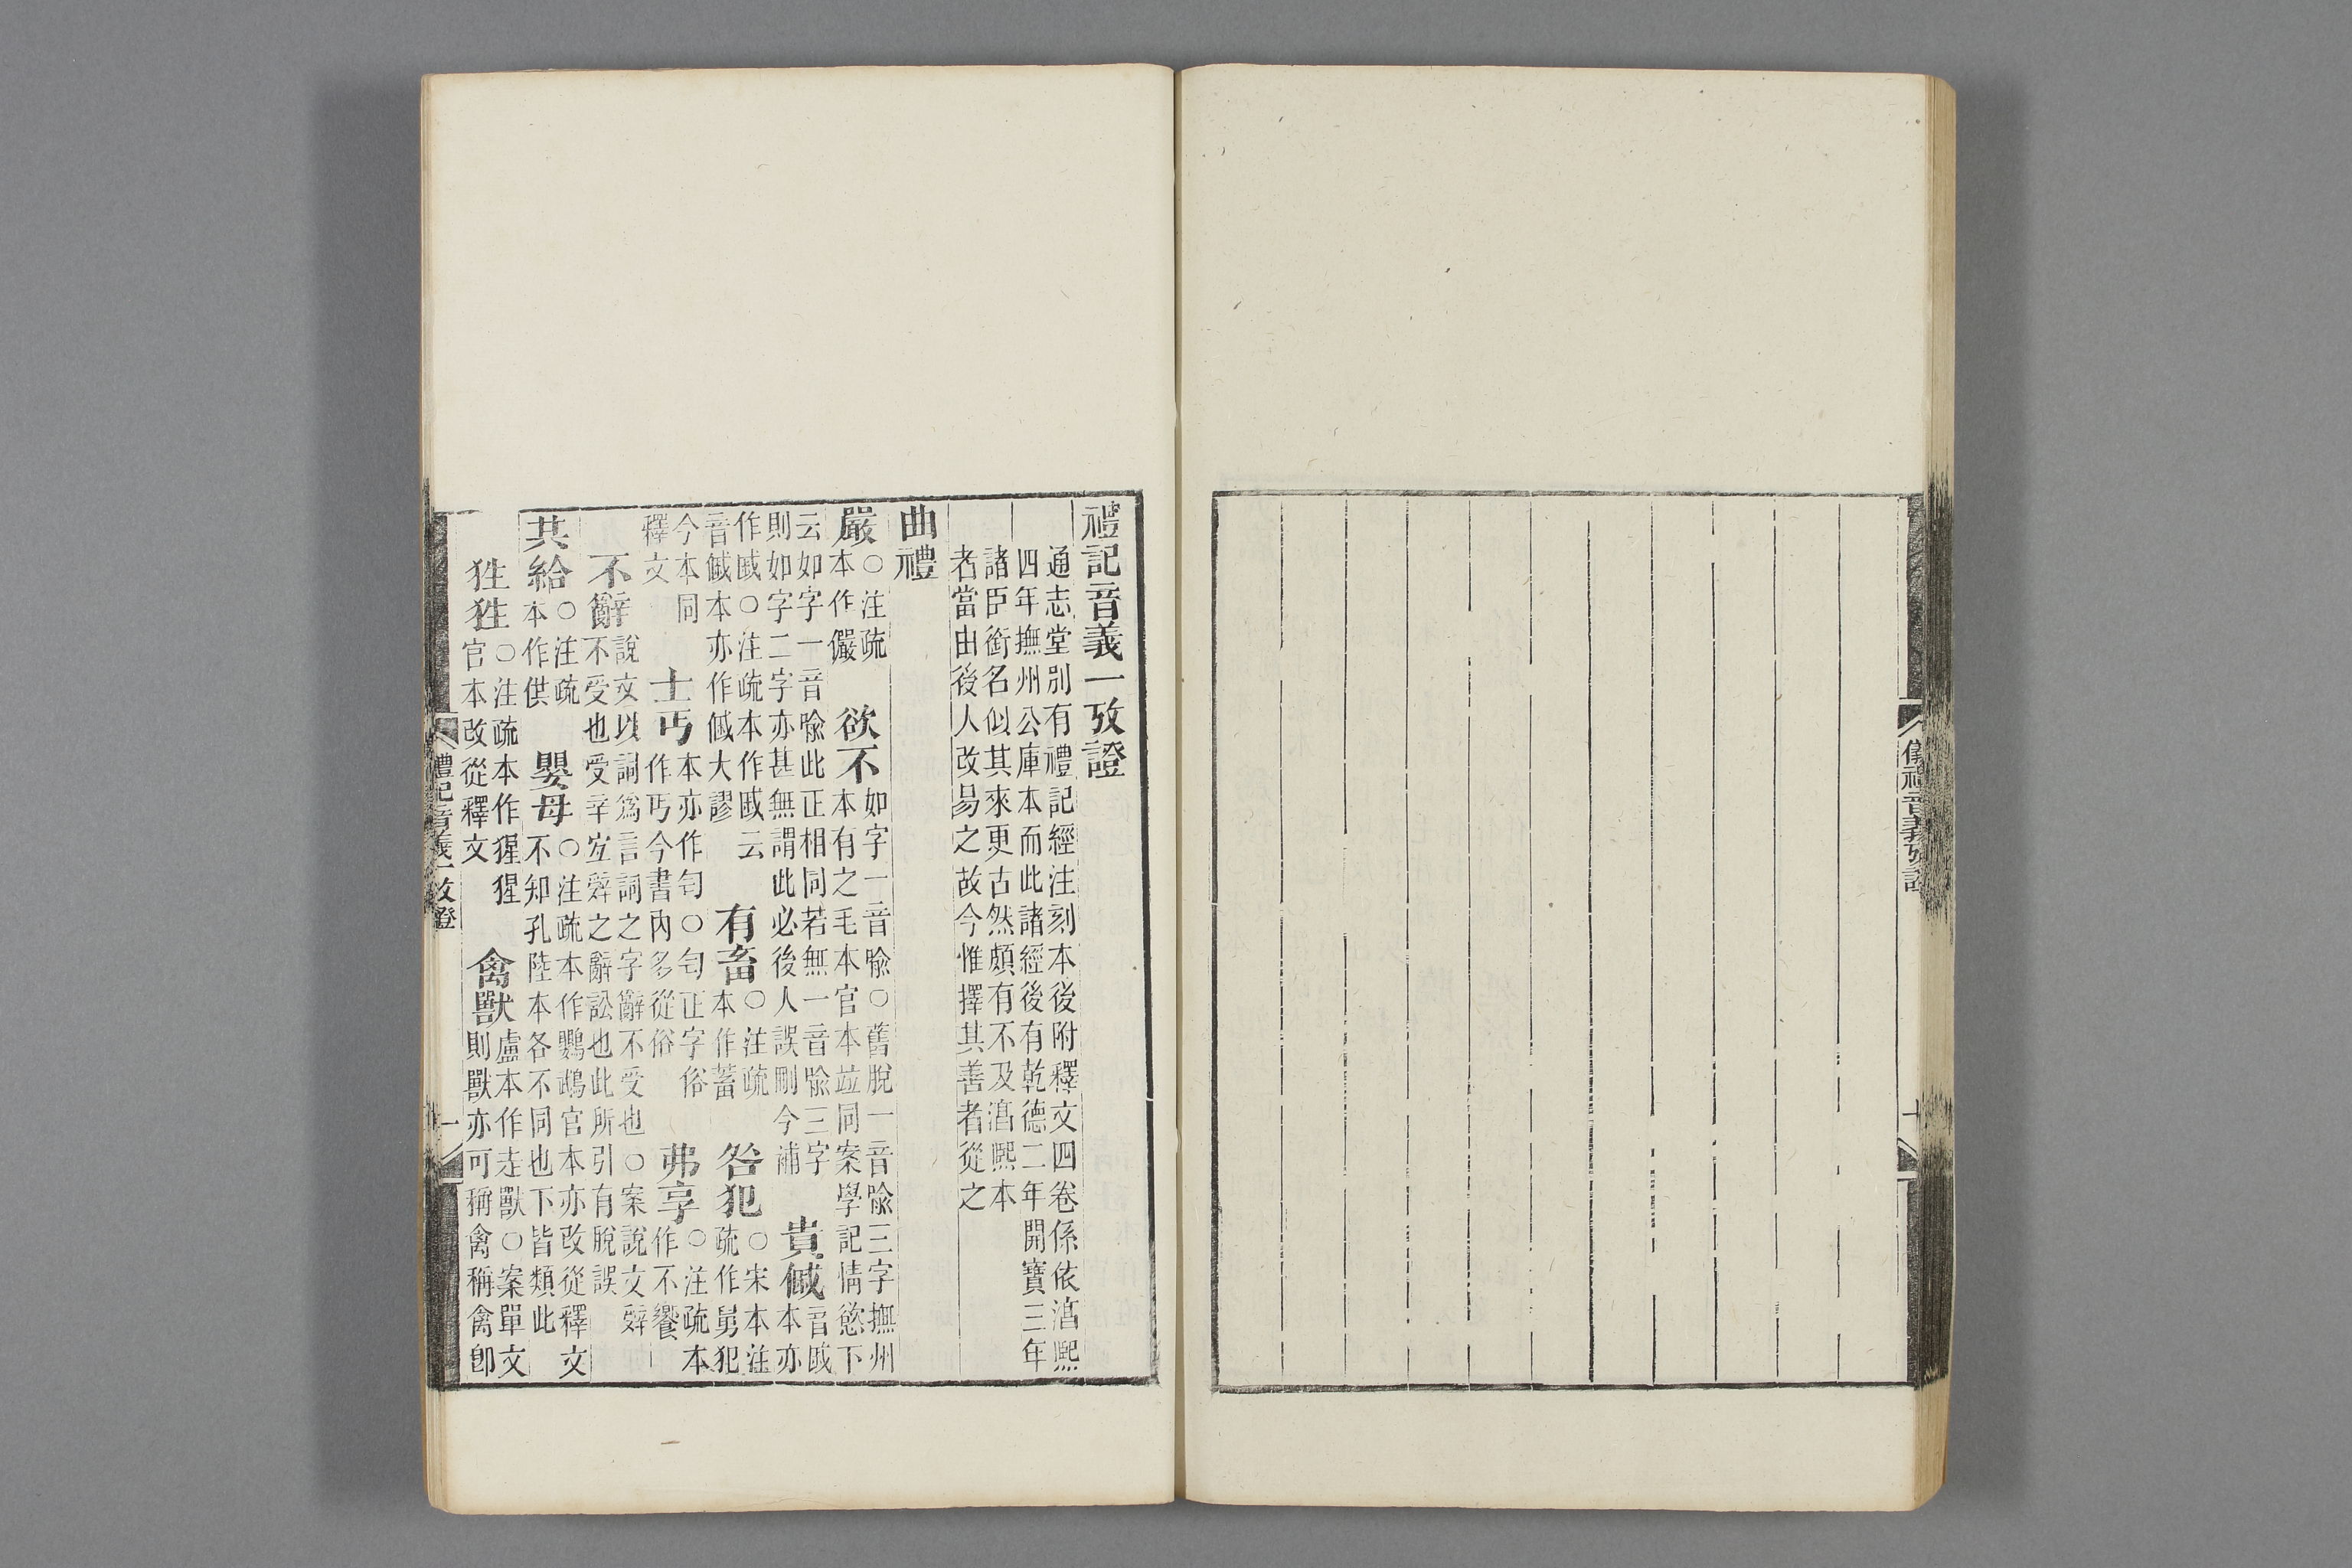 儀禮音義攷證
十
禮記音義一攷證
通志堂別有禮記經注刻本後附釋文四卷係依湻熙
四年撫州公庫本而此諸經後有乾德二年開寶三年
諸臣銜名似其來更古然頗有不及湻熙本
者當由後人改易之故今惟擇其善者從之
曲禮
嚴○注疏本作儼　欲不如字一音喻○舊脫一音喻三字撫州本有之毛本官本竝同案學記情慾下
云如字一音喻此正相同若無一音喻三字則如字二字亦甚無謂此必後人誤刪今補　貴傶音戚本亦
作戚○注疏本作戚云音傶本亦作傶大謬　有畜○注疏本作蓄　咎犯○宋本注疏作舅犯
今本同釋文　士丐本亦作匄○匄正字俗作丐今書內多從俗　弗享○注疏本作不饗
不辭說文以詞爲言詞之字辭不受也○案說文辤不受也受辛宐辤之辭訟也此所引有脫誤
共給○注疏本作供　嬰母○注疏本作鸚鵡官本亦改從釋文不知孔陸本各不同也下皆類此
狌狌○注疏本作猩猩官本改從釋文　禽獸盧本作走獸○案單文則獸亦可稱禽稱禽卽
禮記音義一攷證
一